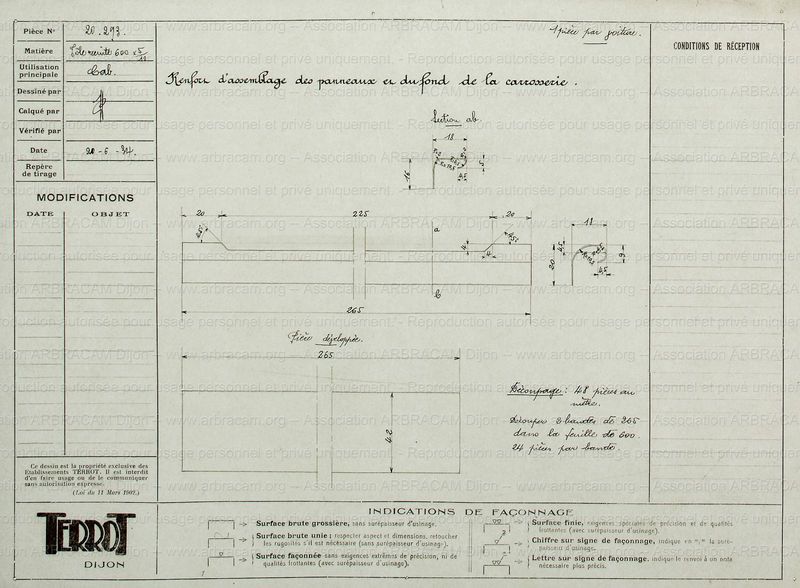 Pièce N° 20.293.
Matière Tôle recuite 600 x 5/10
Utilisation principale Cab.
Dessiné par
Calqué par
Vérifié par
Date 20-6-34.
Repère de tirage
MODIFICATIONS
DATE OBJET
1 pièce par voiture.
CONDITIONS DE RÉCEPTION
Renfort d'assemblage des panneaux et du fond de la carrosserie.
Section ab
18
16
5
4,5
20 225 20
45°
a
4
4
45°
b
265
18
4,5
20
9
4,5
Pièce développée.
265
42
Découpage : 48 pièces au
mètre.
Découper 2 bandes de 265
dans la feuille de 600.
24 pièces par bande.
Ce dessin est la propriété exclusive des
Etablissements TERROT. Il est interdit
d'en faire usage ou de le communiquer
sans autorisation expresse.
(Loi du 11 Mars 1902.)
TERROT
DIJON
INDICATIONS DE FAÇONNAGE
Surface brute grossière, sans surépaisseur d'usinage.
Surface brute unie ; respecter aspect et dimensions, retoucher
les rugosités s'il est nécessaire (sans surépaisseur d'usinage).
Surface façonnée sans exigences extrêmes de précision, ni de
qualités frottantes (avec surépaisseur d'usinage).
Surface finie, exigences spéciales de précision et de qualités
frottantes (avec surépaisseur d'usinage).
Chiffre sur signe de façonnage, indique en "/" la surépaisseur d'usinage.
Lettre sur signe de façonnage, indique le renvoi à une note
nécessaire plus précis.
www.arbracam.org – Association ARBRACAM Dijon - Reproduction autorisée pour usage personnel et privé uniquement.